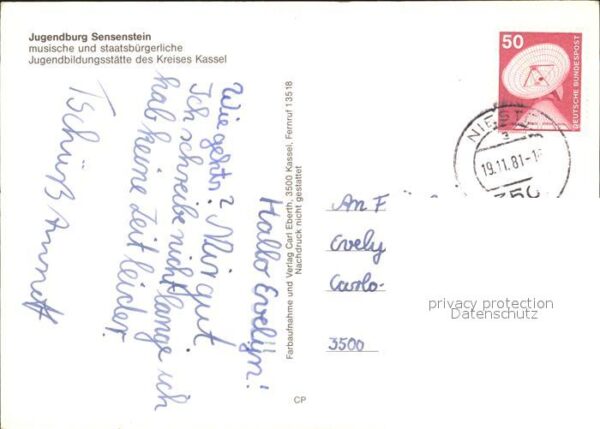 Jugendburg Sensenstein
musische und staatsbürgerliche
Jugendbildungsstätte des Kreises Kassel
Hallo Evelyn!
Wie gehts? Mir gut.
Ich schreibe nicht lange ich
hab keine Zeit leider.
Tschüß Annett
Farbaufnahme und Verlag Carl Eberth, 3500 Kassel, Fernruf 13518
Nachdruck nicht gestattet
CP
50
DEUTSCHE BUNDESPOST
NIEST
3
19.11.81-1
350
An F
Evely
Carlo-
3500
privacy protection
Datenschutz